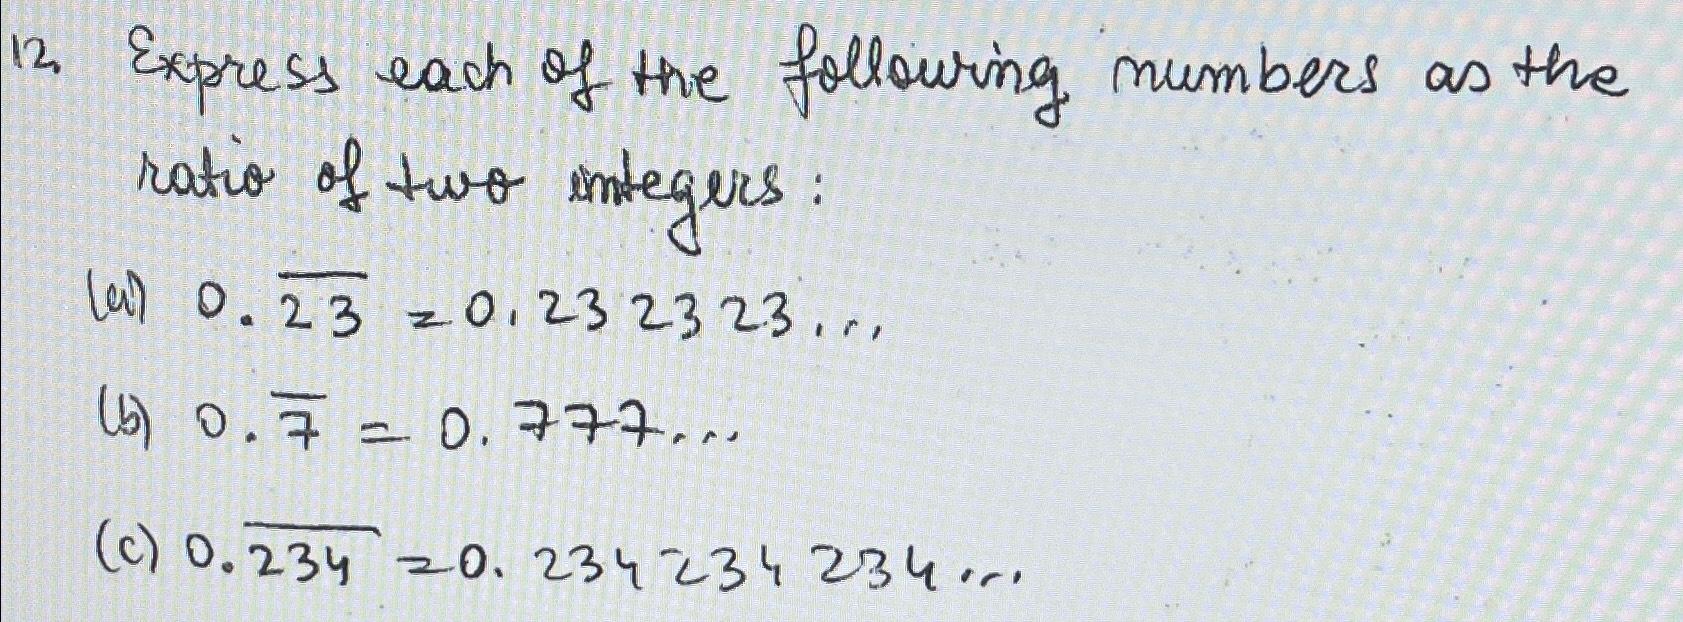 12. Express each of the following numbers as the
ratio of two integers:
(a) 0.\overline{23} = 0.232323...
(b) 0.\overline{7} = 0.777...
(c) 0.\overline{234} = 0.234234234...